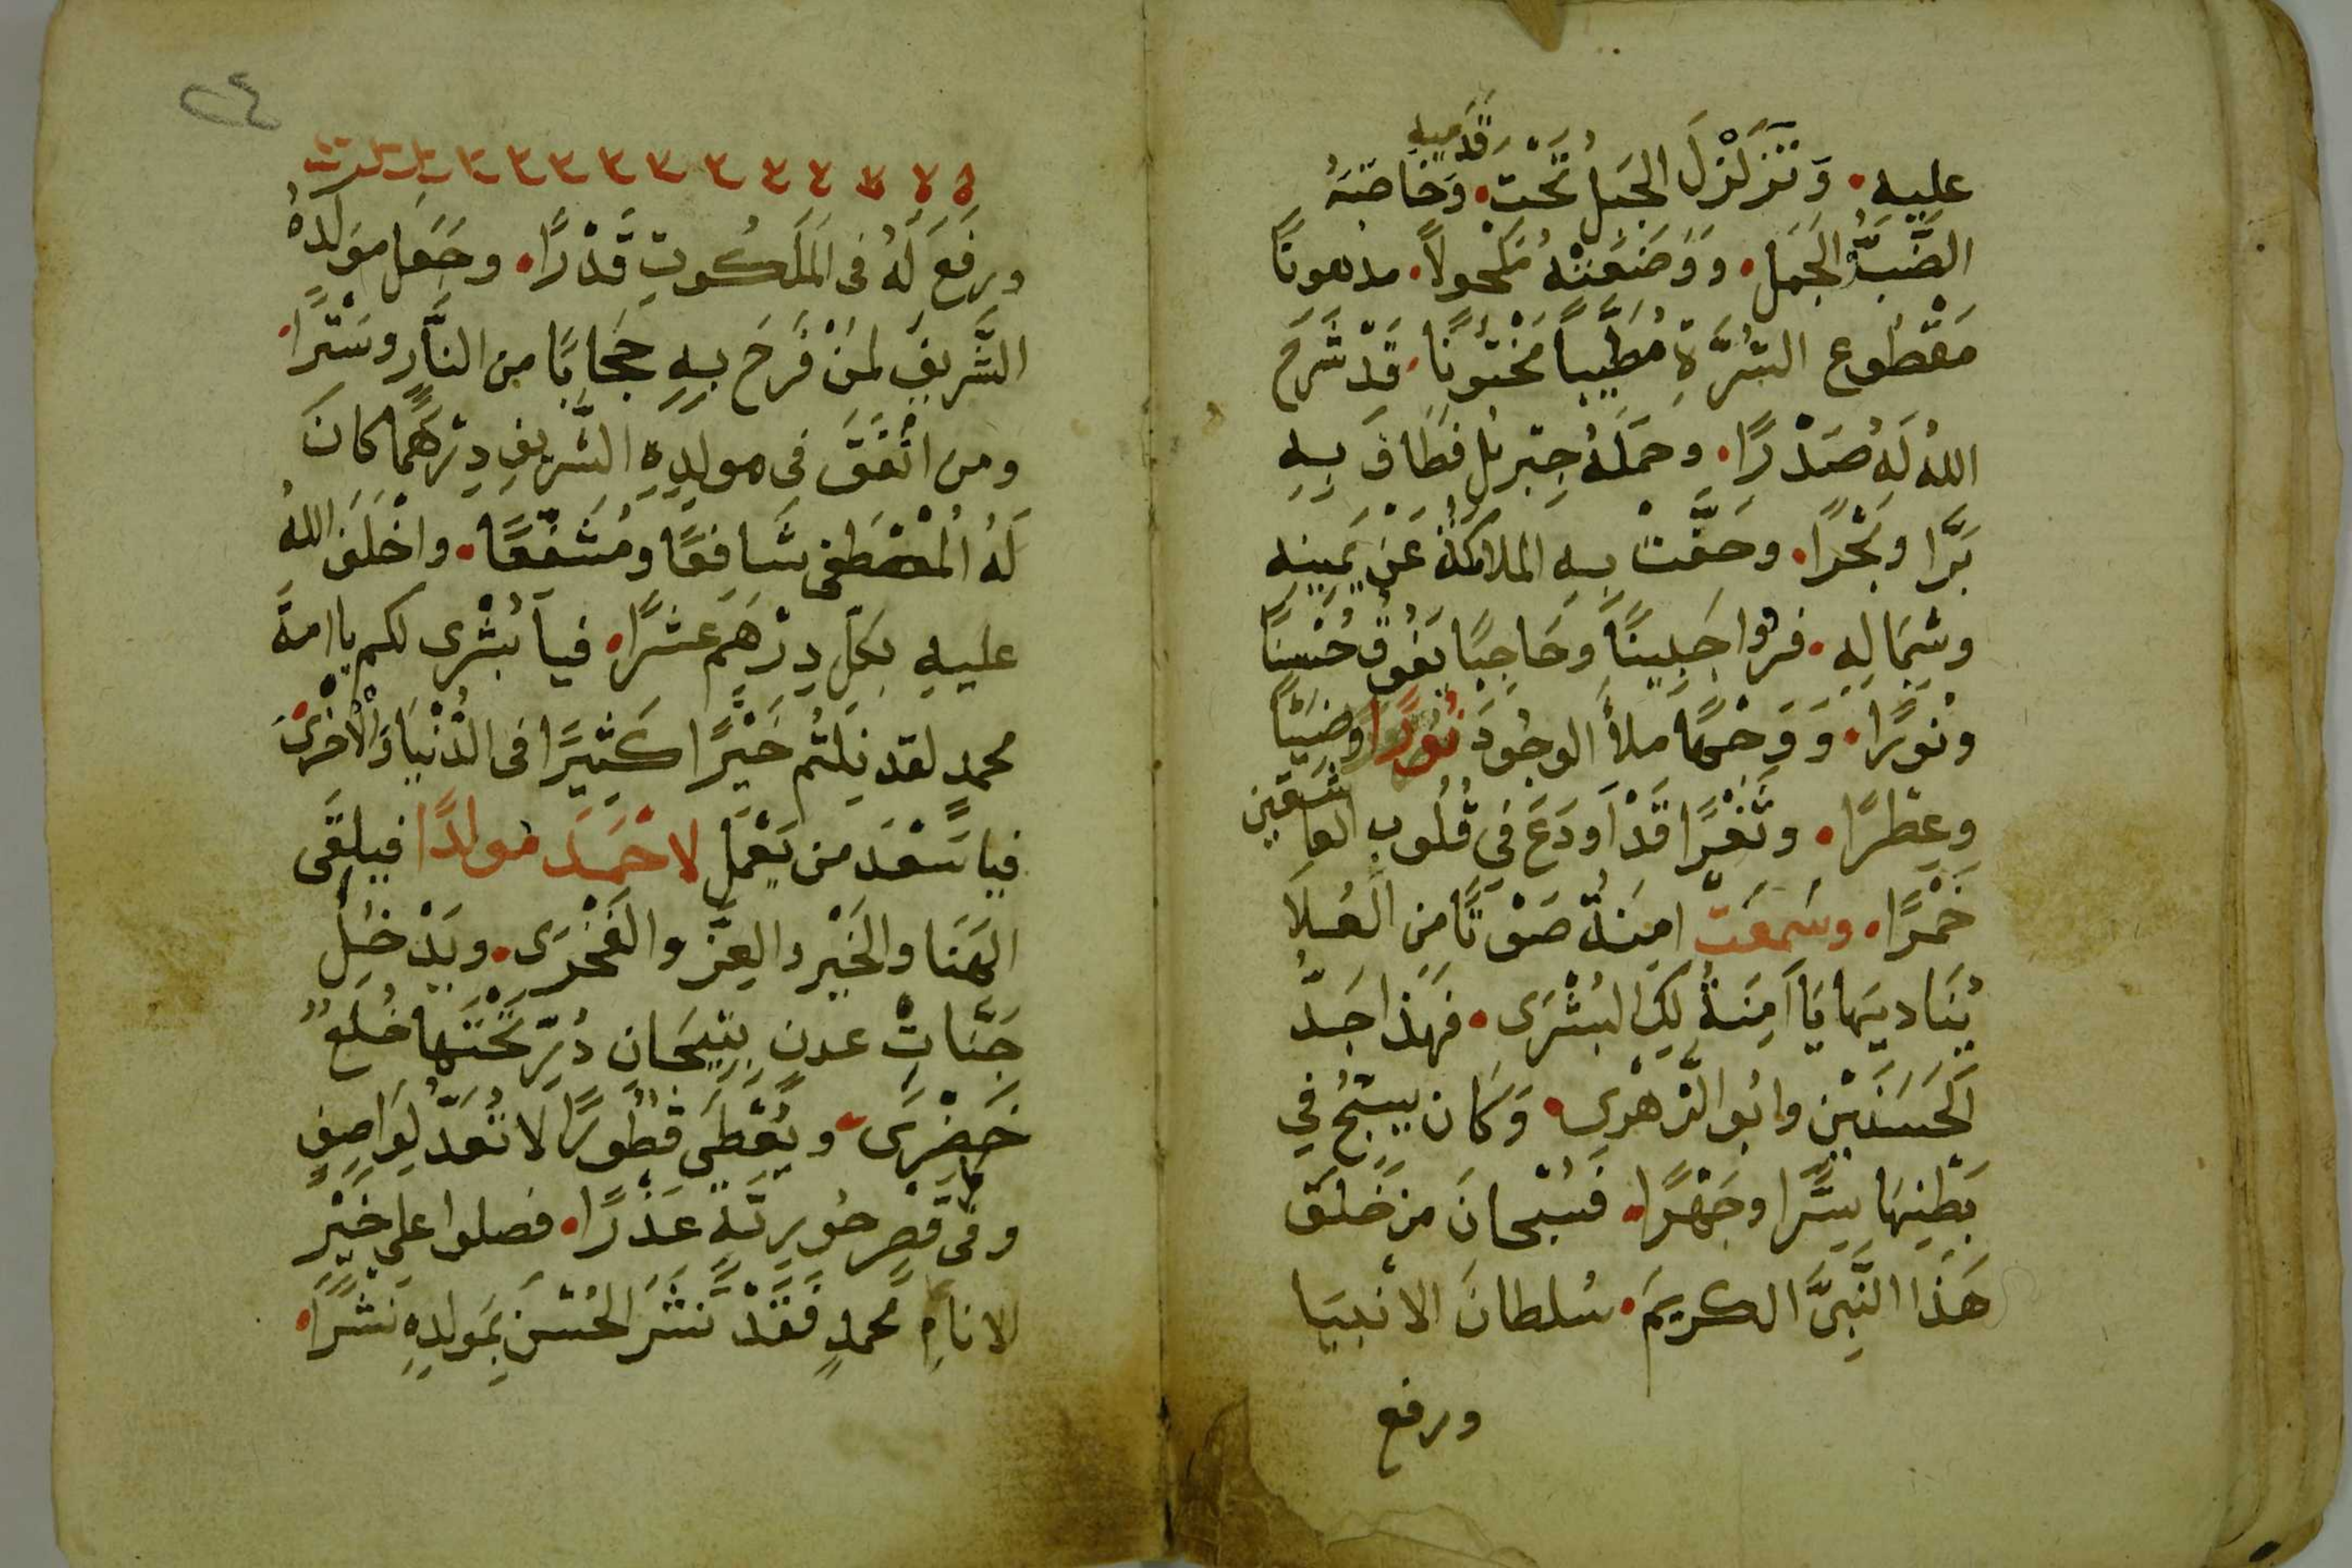 عليه • وَتَزَلْزَلَ الجَبَلُ تَحْتَ قَدَميه • وَخَاطَبَهُ
الضَّبُّ الجَمَل • وَوَضَعَتْهُ مَكْحُولاً • مدهونًا
مَقْطُوع السُّرَّةِ مُطَيَّباً مَخْتُونًا • قَدْ شَرَحَ
اللهُ لَهُ صَدْرًا • وحَمَلَهُ جِبْرِيلُ فَطَافَ بِهِ
بَرًّا وبَحْرًا • وحَفَّتْ بِهِ الملائكةُ عَنْ يَمِينِهِ
وشِمَالِهِ • فرأوا جَبِينًا وَحَاجِبًا يَفُوقُ حُسْنًا
ونُورًا • وَوَجْهًا ملأَ الوجُودَ نُورًا وضِيًا
وعِطْرًا • وثَغْرًا قَدْ اَودَعَ في قُلُوبِ العاشقين
خَمْرًا • وسَمِعَتْ امِنَةُ صَوْتًا مِنَ العُلاَ
يُنَاديهَا يَا آمِنَةُ لَكِ البُشْرَى • فَهَذَا جَدُّ
الحَسَنَيْنِ وابُو الزَّهْرى • وَكَان يُسَبِّحُ في
بَطْنِهَا سِرًّا وجَهْرًا • فَسُبْحانَ مَنْ خَلَقَ
هَذَا النَّبِىَّ الكريمَ • سُلطانَ الانْبيَا
ورفع
ورفَعَ لَهُ فى المَلَكُوتِ قَدْرًا • وجَعَل مَوْلدَهُ
الشَّرِيفَ لمَنْ فَرَحَ بِهِ حِجَابًا من النَّارِ وسَتْرًا •
ومن انْفَقَ في مولِدِهِ الشَّرِيفِ دِرْهَمًا كَانَ
لَهُ الْمُصْطَفى شَافِعًا ومُشَفَّعًا • واخْلَفَ اللهُ
عليهِ بكلِّ دِرْهَمٍ عَشْرًا • فيا بُشْرى لكم يا امةَ
محمدٍ لقد نِلْتُم خَيْرًا كَثِيرًا فى الدُّنْيَا وَالْأُخْرَى •
فيا سَعْدَ من يَعْمَل لاحْمَدَ مولدًا فيلقَى
الهَنَا والخَيْر والعِزَّ والفَخْرَى • ويَدْخُلُ
جَنَّاتِ عدنٍ بِتِيجَانِ دُرٍّ تَحْتَهَا خُلَعٌ
خَضْرَى • ويُعْطَى قُصُورًا لا تُعَدُّ لِوَاصِفٍ
وفى قَصْرِ حُورِيَّةٍ عَذْرًا • فصلوا على خَيْرِ
الانامِ مُحمدٍ فَقَدْ نَشَرَ الحُسْنَ بِمَولدِهِ نَشْرًا •